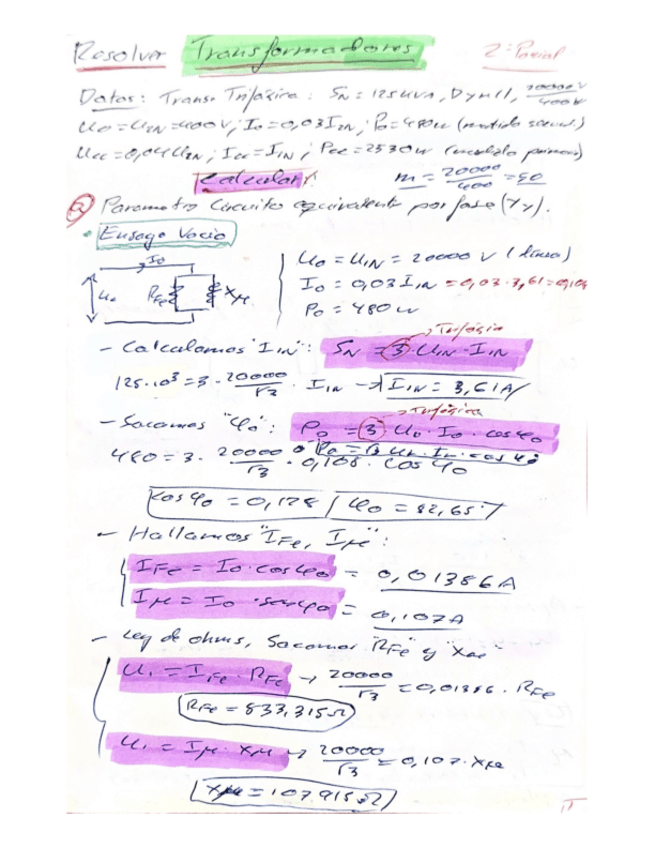 Resolver Transformadores 2º Parcial
Datos: Transo Trifásico: SN = 125 kVA, Dyn11, 20000V/400V
U0 = U2N = 400V; I0 = 0,03 I2N; P0 = 480w (medido secund.)
Ucc = 0,04 U1N; Icc = I1N; Pcc = 2530w (medido primario)
Calcular m = 20000/400 = 50
a) Parametros Circuito equivalente por fase (Yy).
• Ensayo Vacio
I0
U0 RFe Xμ
U0 = U1N = 20000 V (linea)
I0 = 0,03 I1N = 0,03 · 3,61 = 0,108
P0 = 480w
Trifásico
- Calculamos "I1N": SN = 3 · U1N · I1N
125·10³ = 3 · 20000/√3 · I1N → I1N = 3,61A
Trifásico
- Sacamos "φ0": P0 = 3 · U0 · I0 · cosφ0
480 = 3 · 20000/√3 · 0,108 · cosφ0
cosφ0 = 0,128 / φ0 = 82,65º
- Hallamos "IFe, Iμ":
IFe = I0 · cosφ0 = 0,01386A
Iμ = I0 · senφ0 = 0,107A
- Ley de ohms, Sacamos "RFe" y Xμ
U1 = IFe · RFe → 20000/√3 = 0,01386 · RFe
RFe = 833,315Ω
U1 = Iμ · Xμ → 20000/√3 = 0,107 · Xμ
Xμ = 107.915Ω